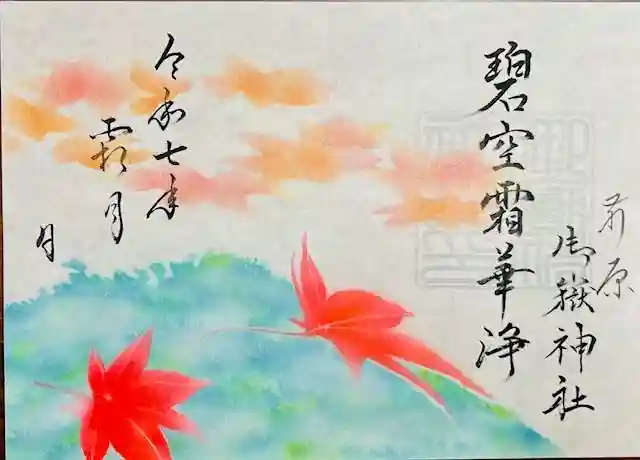 前原
御嶽神社
碧空霜華浄
令和七年
霜月
月